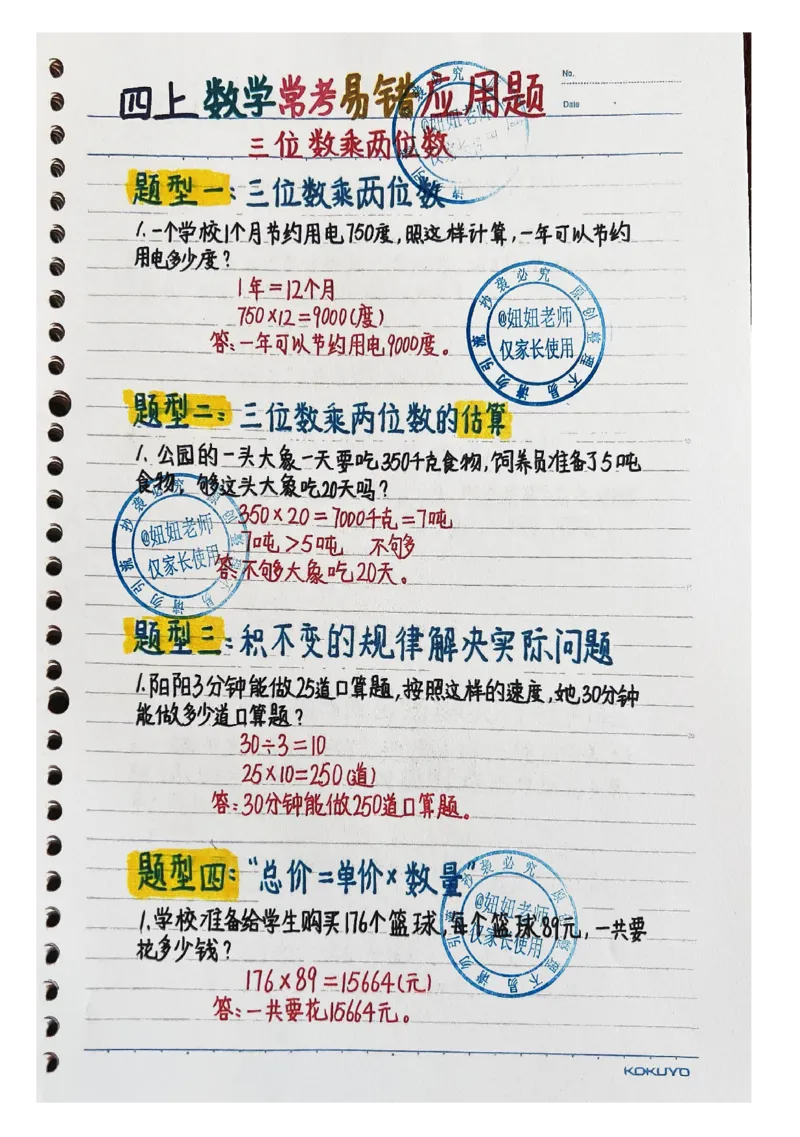 No.
Date
四上数学常考易错应用题
三位数乘两位数
题型一:三位数乘两位数
1.一个学校1个月节约用电750度,照这样计算,一年可以节约
用电多少度?
1年=12个月
750×12=9000(度)
答:一年可以节约用电9000度。
抄袭必究 原创整理 不易 请勿引流
@妞妞老师
仅家长使用
题型二:三位数乘两位数的估算
1.公园的一头大象一天要吃350千克食物,饲养员准备了5吨
食物,够这头大象吃20天吗?
350×20=7000千克=7吨
7吨>5吨 不够
答:不够大象吃20天。
@妞妞老师
仅家长使用
题型三:积不变的规律解决实际问题
1.阳阳3分钟能做25道口算题,按照这样的速度,她30分钟
能做多少道口算题?
30÷3=10
25×10=250(道)
答:30分钟能做250道口算题。
题型四:"总价=单价×数量"
1.学校准备给学生购买176个篮球,每个篮球89元,一共要
花多少钱?
@妞妞老师
仅家长使用
176×89=15664(元)
答:一共要花15664元。
KOKUYO